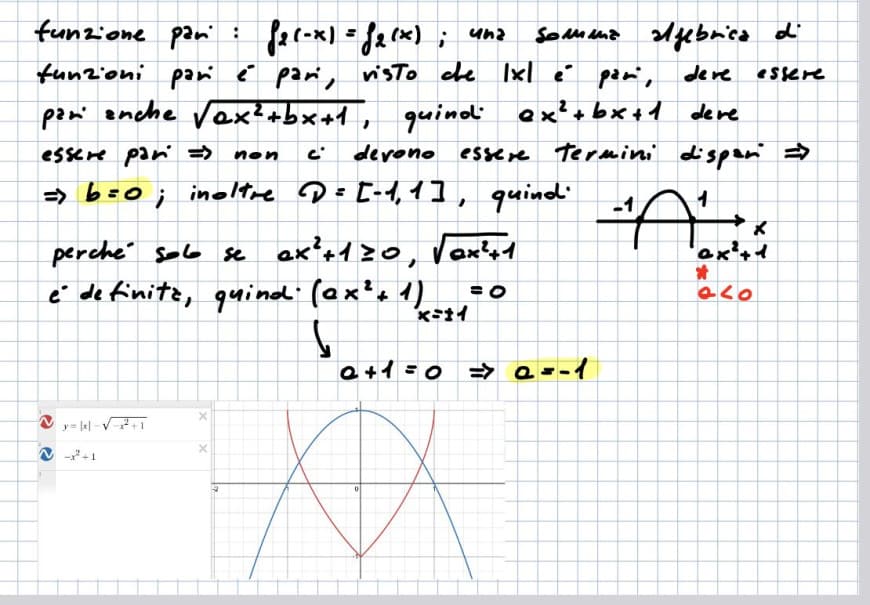 funzione pari : f₂(-x) = f₂(x) ; una somma algebrica di
funzioni pari è pari, visto che |x| è pari, deve essere
pari anche √ax²+bx+1 , quindi ax²+bx+1 deve
essere pari ⇒ non ci devono essere termini dispari ⇒
⇒ b=0 ; inoltre D = [-1, 1] , quindi
-1 1
x
perché solo se ax²+1 ≥ 0 , √ax²+1
ax²+1
*
è definita, quindi (ax²+1) x=±1 = 0
a<0
a+1 = 0 ⇒ a = -1
y = |x| - √-x²+1
-x²+1
-2
0
1